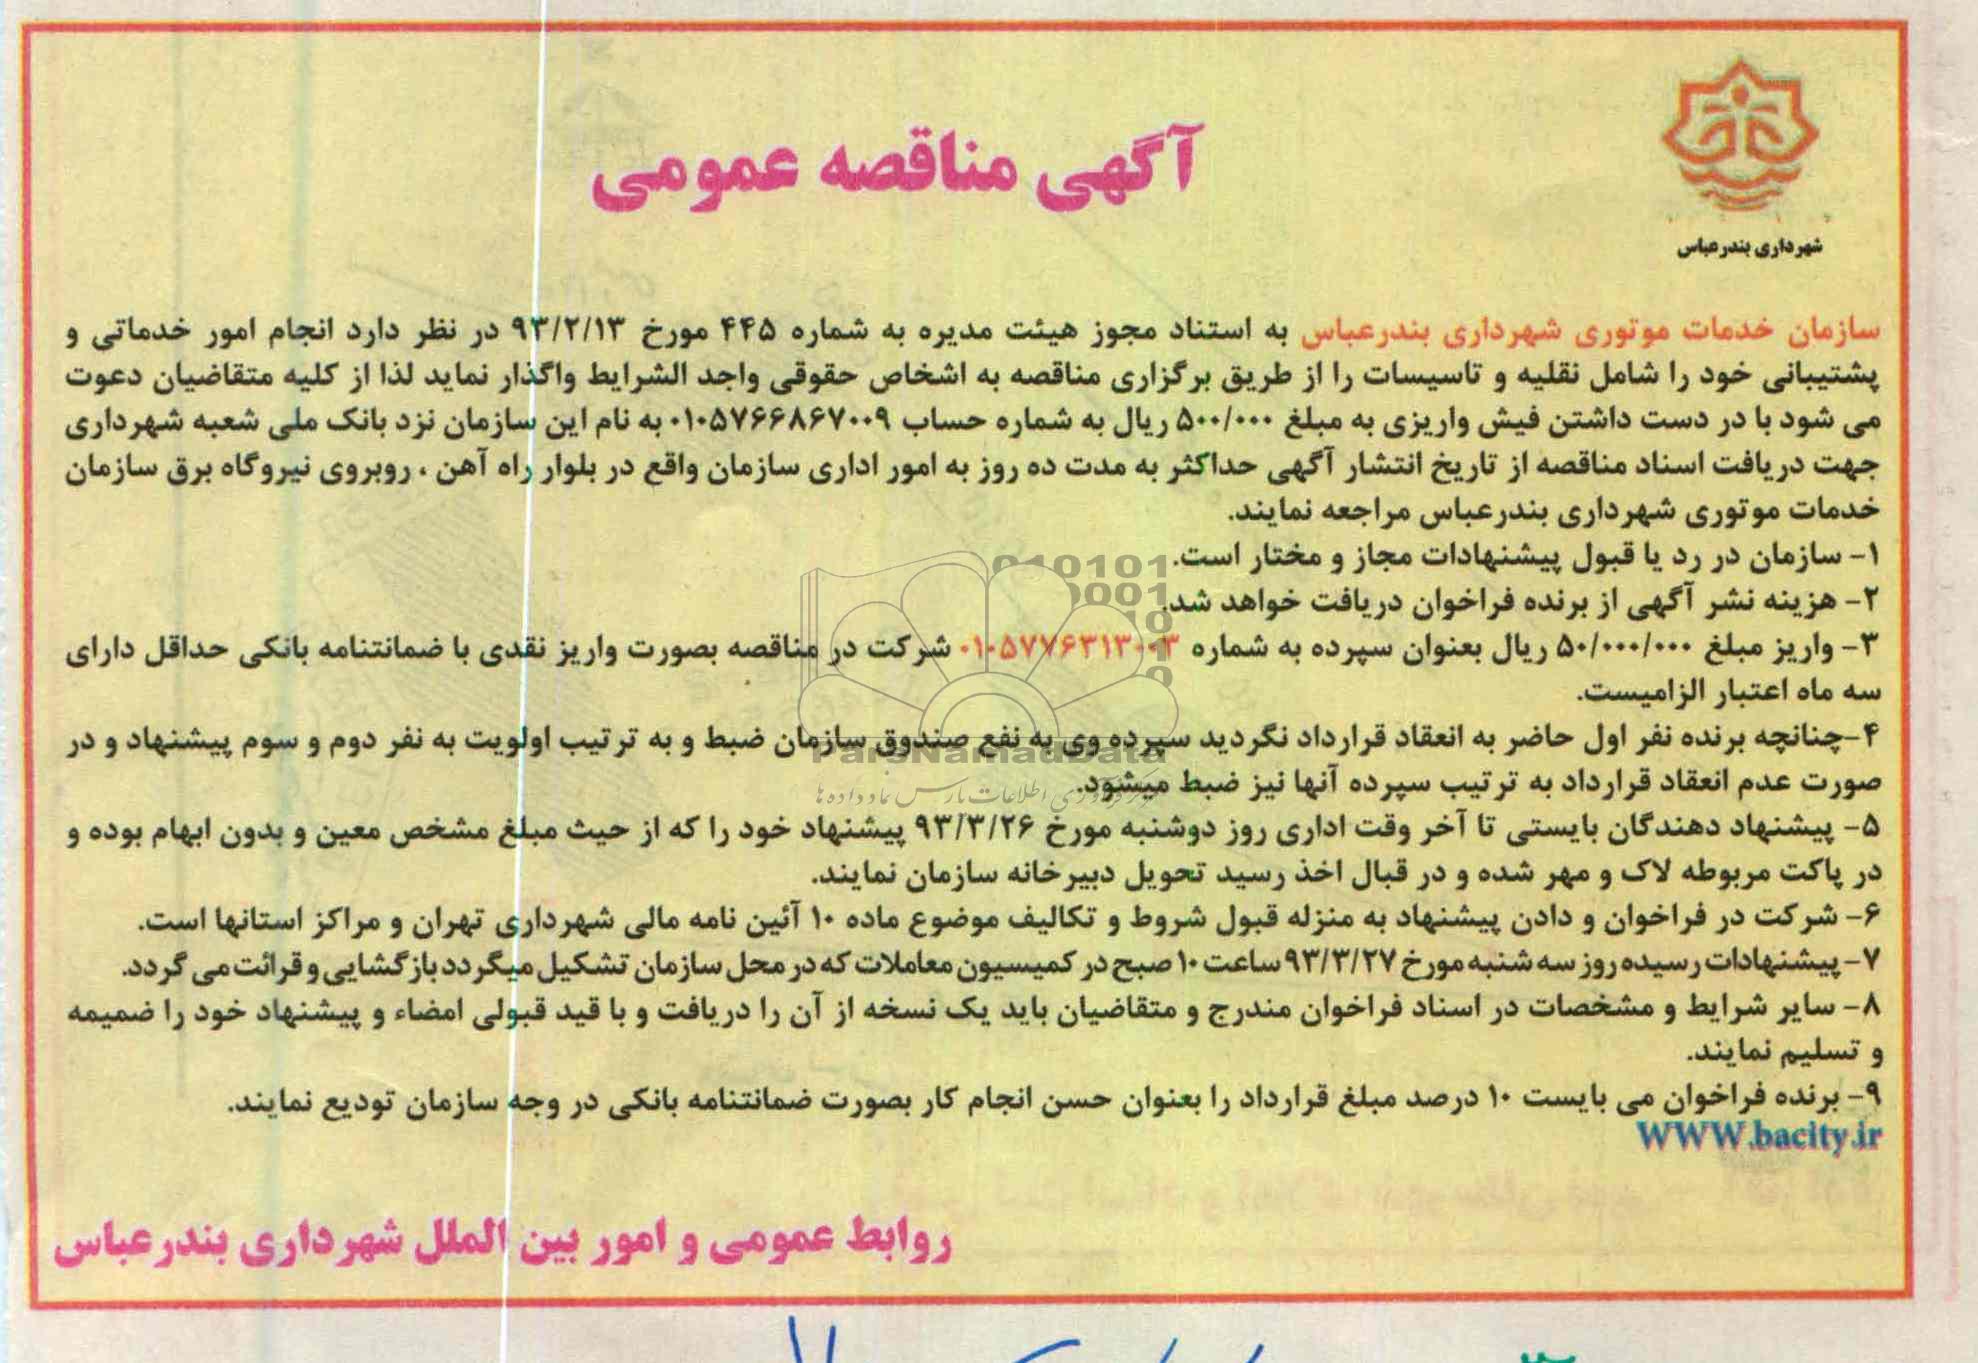 شهرداری بندرعباس
آگهی مناقصه عمومی
سازمان خدمات موتوری شهرداری بندرعباس به استناد مجوز هیئت مدیره به شماره ۴۴۵ مورخ ۹۳/۲/۱۳ در نظر دارد انجام امور خدماتی و
پشتیبانی خود را شامل نقلیه و تاسیسات را از طریق برگزاری مناقصه به اشخاص حقوقی واجد الشرایط واگذار نماید لذا از کلیه متقاضیان دعوت
می شود با در دست داشتن فیش واریزی به مبلغ ۵۰۰/۰۰۰ ریال به شماره حساب ۰۱۰۵۷۶۶۸۶۷۰۰۹ به نام این سازمان نزد بانک ملی شعبه شهرداری
جهت دریافت اسناد مناقصه از تاریخ انتشار آگهی حداکثر به مدت ده روز به امور اداری سازمان واقع در بلوار راه آهن ، روبروی نیروگاه برق سازمان
خدمات موتوری شهرداری بندرعباس مراجعه نمایند.
۱- سازمان در رد یا قبول پیشنهادات مجاز و مختار است.
۲- هزینه نشر آگهی از برنده فراخوان دریافت خواهد شد.
۳- واریز مبلغ ۵۰/۰۰۰/۰۰۰ ریال بعنوان سپرده به شماره ۰۱۰۵۷۷۶۳۱۳۰۰۳ شرکت در مناقصه بصورت واریز نقدی با ضمانتنامه بانکی حداقل دارای
سه ماه اعتبار الزامیست.
۴-چنانچه برنده نفر اول حاضر به انعقاد قرارداد نگردید سپرده وی به نفع صندوق سازمان ضبط و به ترتیب اولویت به نفر دوم و سوم پیشنهاد و در
صورت عدم انعقاد قرارداد به ترتیب سپرده آنها نیز ضبط میشود.
۵- پیشنهاد دهندگان بایستی تا آخر وقت اداری روز دوشنبه مورخ ۹۳/۳/۲۶ پیشنهاد خود را که از حیث مبلغ مشخص معین و بدون ابهام بوده و
در پاکت مربوطه لاک و مهر شده و در قبال اخذ رسید تحویل دبیرخانه سازمان نمایند.
۶- شرکت در فراخوان و دادن پیشنهاد به منزله قبول شروط و تکالیف موضوع ماده ۱۰ آئین نامه مالی شهرداری تهران و مراکز استانها است.
۷- پیشنهادات رسیده روز سه شنبه مورخ ۹۳/۳/۲۷ ساعت ۱۰ صبح در کمیسیون معاملات که در محل سازمان تشکیل میگردد بازگشایی و قرائت می گردد.
۸- سایر شرایط و مشخصات در اسناد فراخوان مندرج و متقاضیان باید یک نسخه از آن را دریافت و با قید قبولی امضاء و پیشنهاد خود را ضمیمه
و تسلیم نمایند.
۹- برنده فراخوان می بایست ۱۰ درصد مبلغ قرارداد را بعنوان حسن انجام کار بصورت ضمانتنامه بانکی در وجه سازمان تودیع نمایند.
WWW.bacity.ir
روابط عمومی و امور بین الملل شهرداری بندرعباس
ParsNamadData